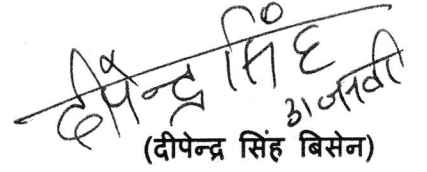 दीपेन्द्र सिंह
(दीपेन्द्र सिंह बिसेन)